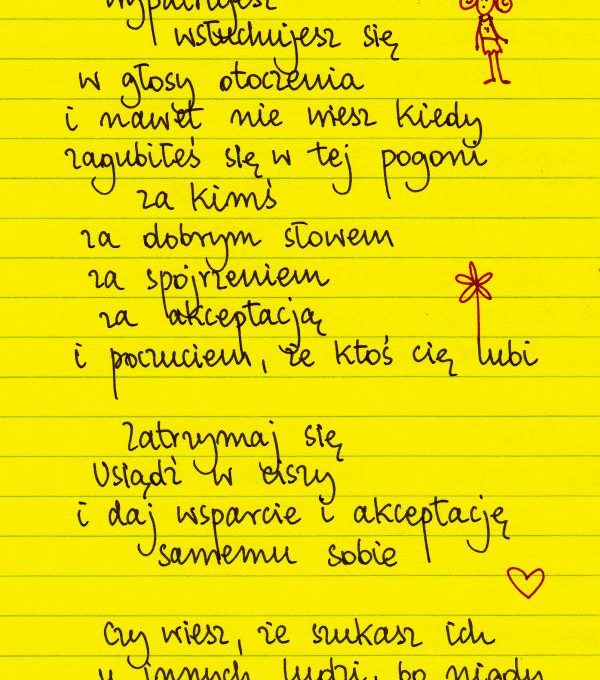 wypatrujesz
wsłuchujesz się
w głosy otoczenia
i nawet nie wiesz kiedy
zagubiłeś się w tej pogoni
za kimś
za dobrym słowem
za spojrzeniem
za akceptacją
i poczuciem, że ktoś cię lubi
Zatrzymaj się
Usiądź w ciszy
i daj wsparcie i akceptację
samemu sobie
Czy wiesz, że szukasz ich
u innych ludzi, bo nigdy